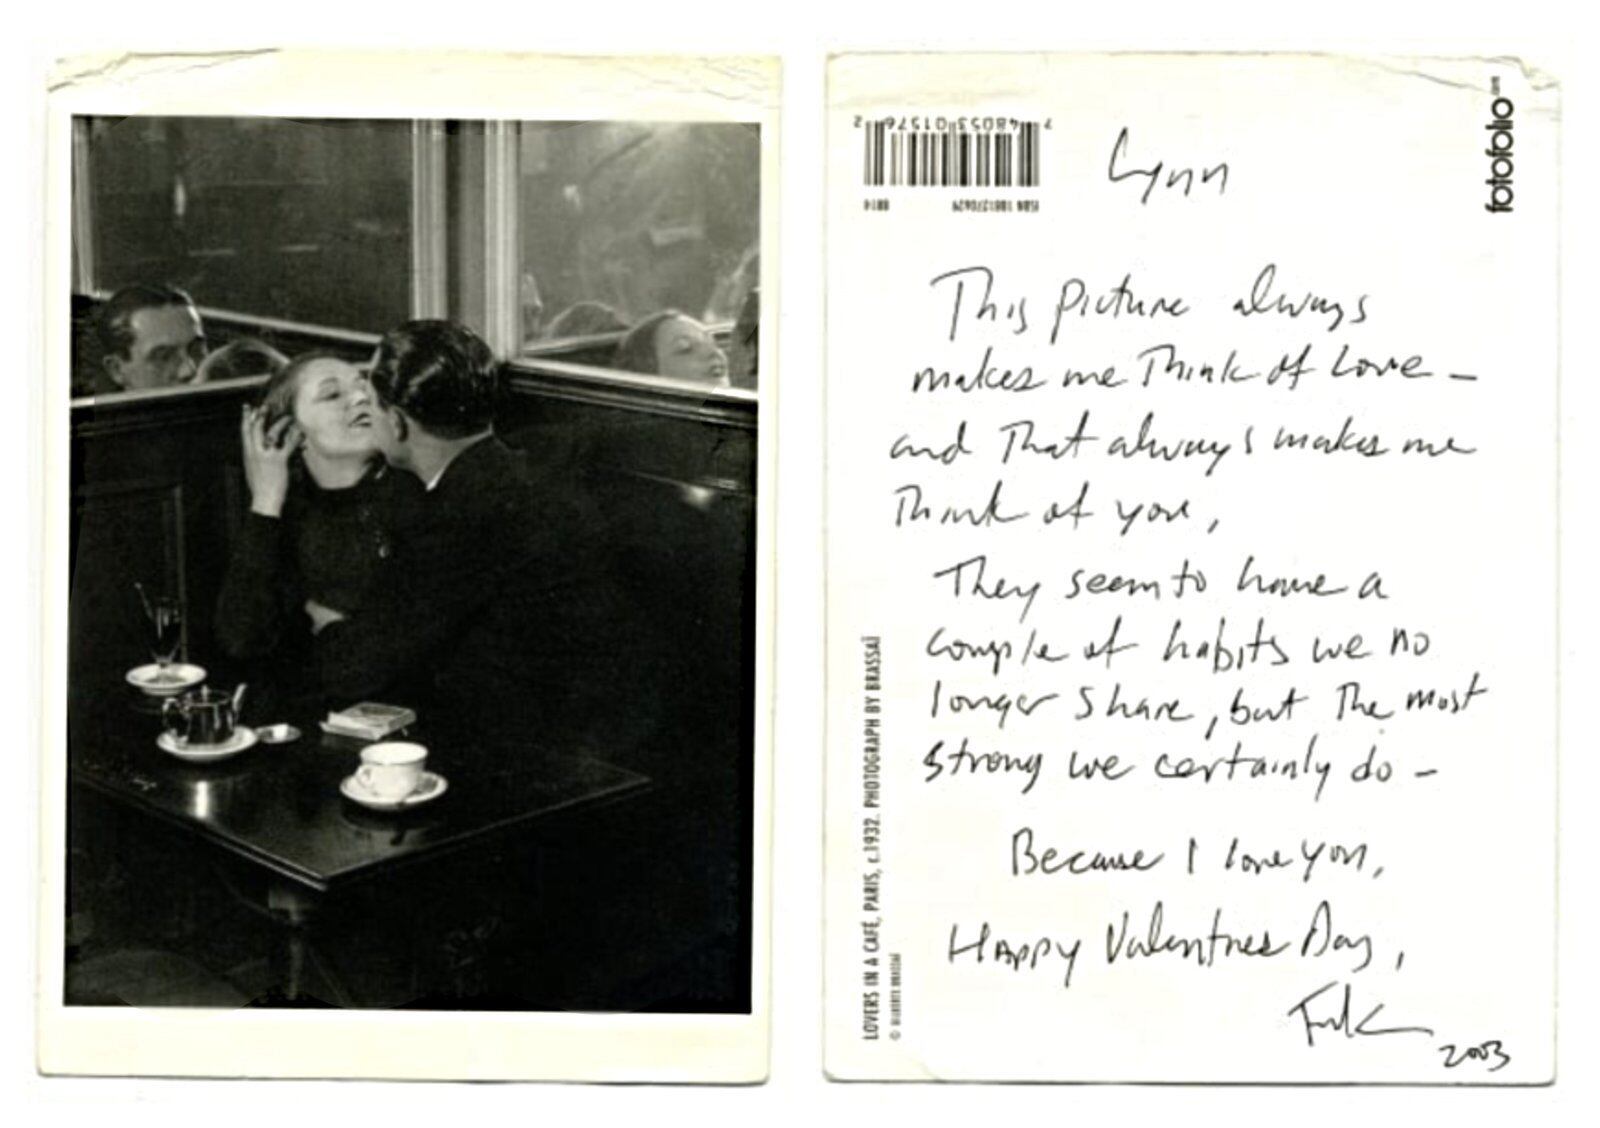 7 48053 01576 2
ISBN 1881270629
8814
fotofolio.com
Lynn
This picture always
makes me think of love –
and that always makes me
think of you,
They seem to have a
couple of habits we no
longer share, but the most
strong we certainly do –
Because I love you,
Happy Valentines Day,
2003
LOVERS IN A CAFÉ, PARIS, c.1932. PHOTOGRAPH BY BRASSAÏ
© GILBERTE BRASSAÏ